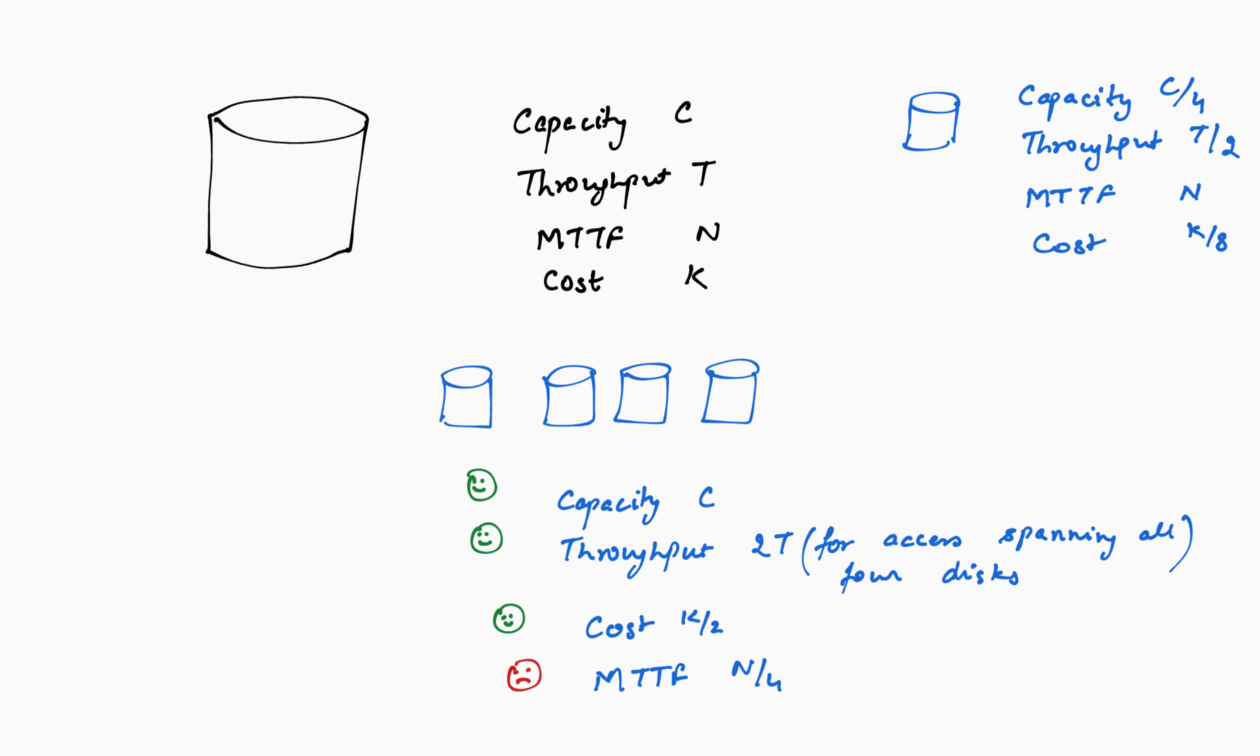 Capacity C
Throughput T
MTTF N
Cost K
Capacity C/4
Throughput T/2
MTTF N
Cost K/8
Capacity C
Throughput 2T (for access spanning all
four disks)
Cost K/2
MTTF N/4